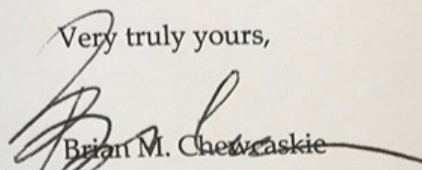 Very truly yours,
Brian M. Chewcaskie